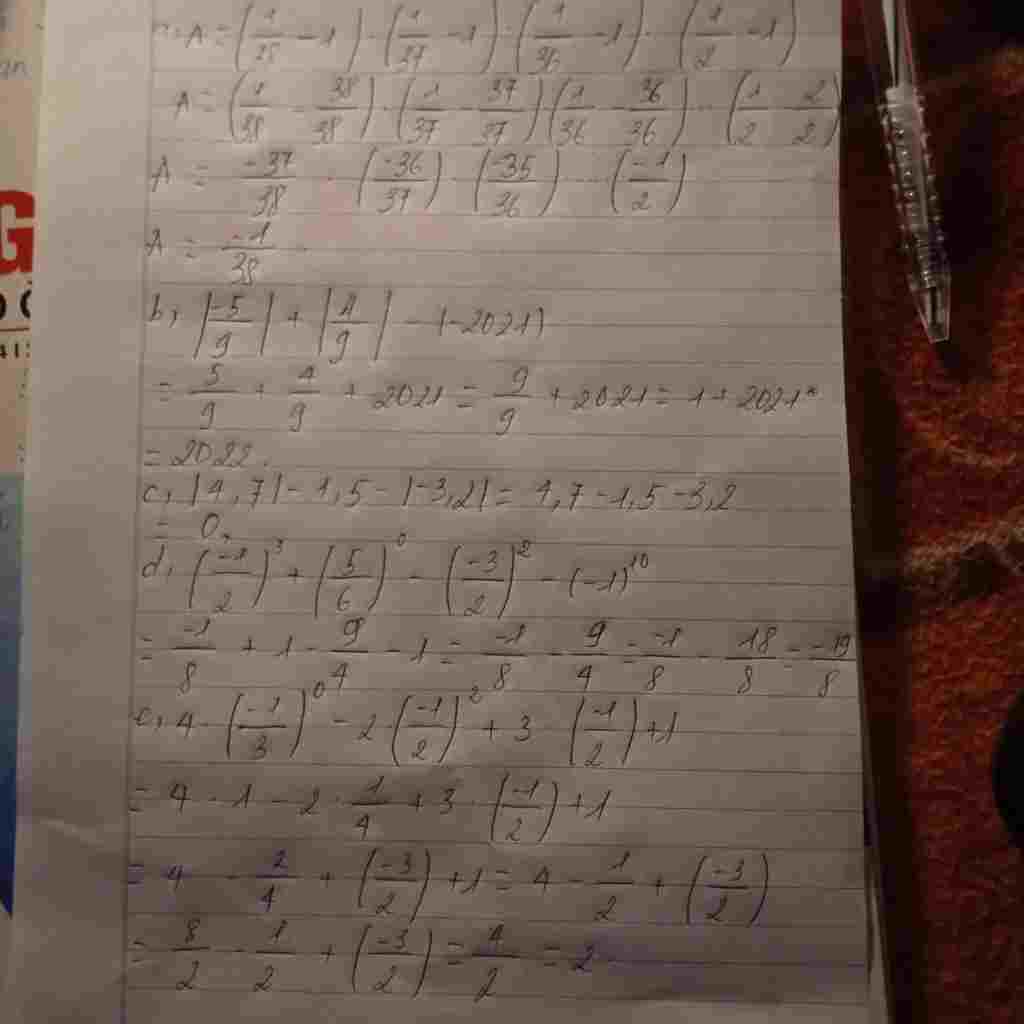 A = (1/38 - 1) · (1/37 - 1) · (1/36 - 1) · (1/2 - 1)
A = (1/38 - 38/38) · (1/37 - 37/37) (1/36 - 36/36) ... (1/2 - 2/2)
A = -37/38 · (-36/37) · (-35/36) ... (-1/2)
A = -1/38
b, |-5/9| + |4/9| - (-2021)
= 5/9 + 4/9 + 2021 = 9/9 + 2021 = 1 + 2021
= 2022.
c, |4,7| - 1,5 - |-3,2| = 4,7 - 1,5 - 3,2
= 0.
d, (-1/2)^3 + (5/6)^0 - (-3/2)^2 - (-1)^10
= -1/8 + 1 - 9/4 - 1 = -1/8 - 9/4 = -1/8 - 18/8 = -19/8
e, 4 · (-1/3)^0 - 2 · (-1/2)^2 + 3 · (-1/2) + 1
= 4 · 1 - 2 · 1/4 + 3 · (-1/2) + 1
= 4 - 2/4 + (-3/2) + 1 = 4 - 1/2 + (-3/2)
= 8/2 - 1/2 + (-3/2) = 4/2 = 2